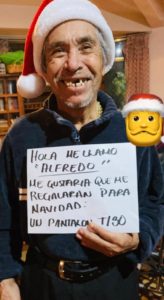 HOLA ME LLAMO
"ALFREDO"
ME GUSTARIA QUE ME
REGALARAN PARA
NAVIDAD:
UN PANTALON T/30